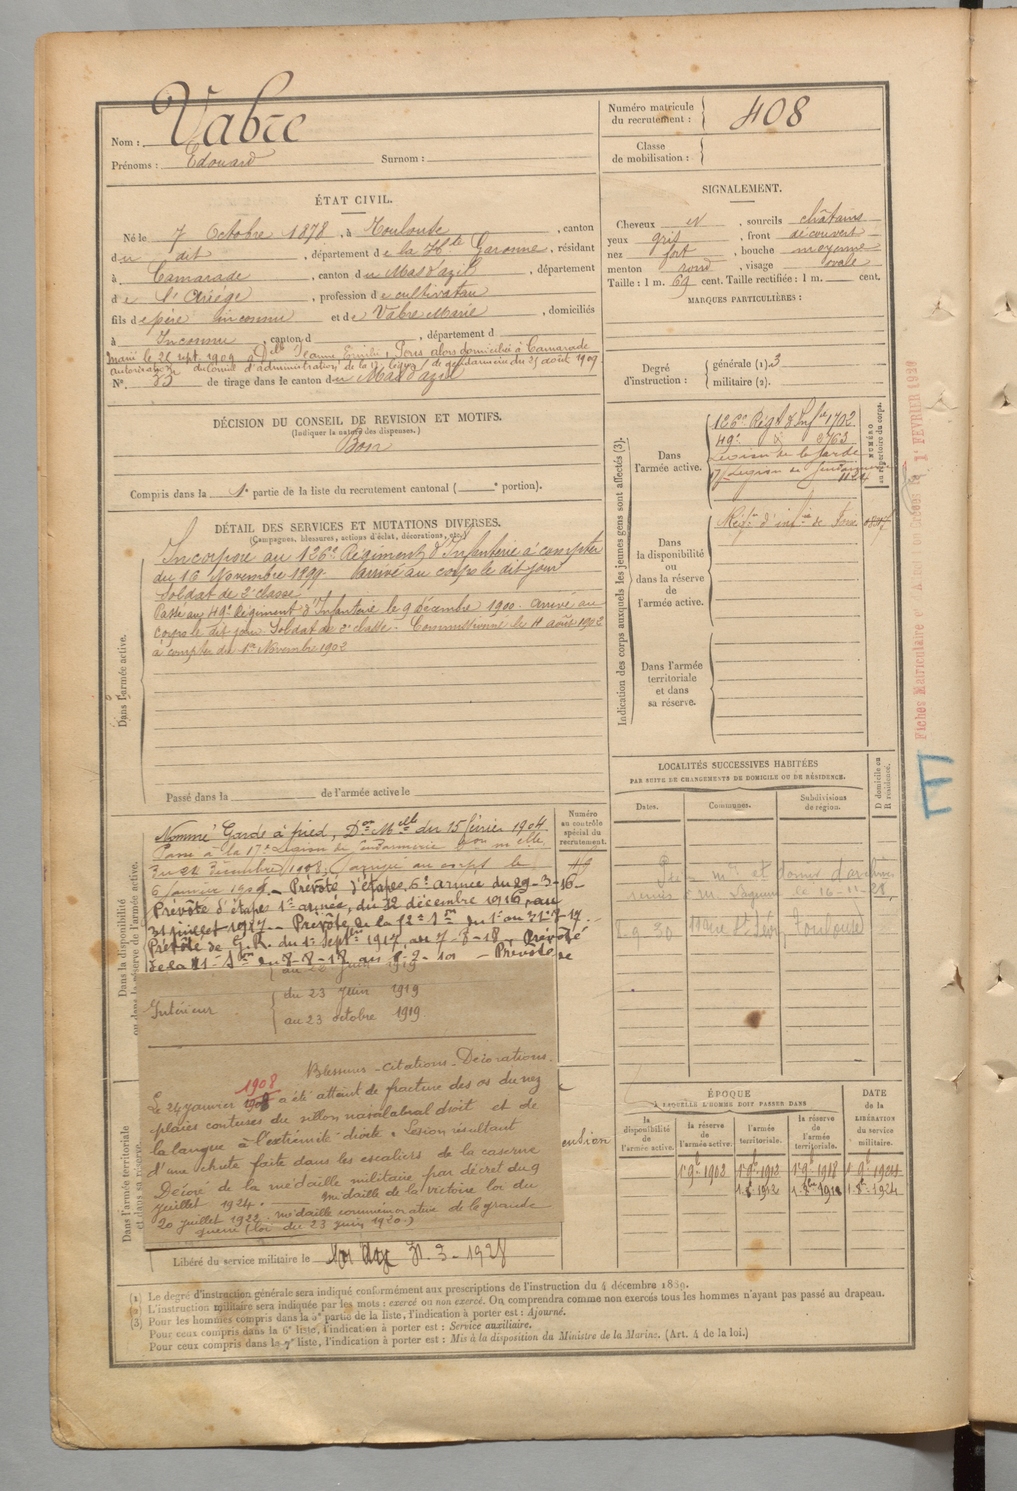 Nom : Vabre
Prénoms : Edouard Surnom :
Numéro matricule du recrutement : 408
Classe de mobilisation :
ÉTAT CIVIL.
Né le 7 Octobre 1878, à Toulouse, canton
du dit, département de la Hte Garonne, résidant
à Camarade, canton du Mas d'azil, département
de l'Ariège, profession de cultivateur
fils de père inconnu et de Vabre Marie, domiciliés
à Inconnu, canton d , département d
Marié le 25 sept. 1909 à Dlle Jeanne, Emilie, Pons alors domiciliée à Camarade
autorisation du Conseil d'administration de la 17e légion de gendarmerie du 25 août 1909
N° 35 de tirage dans le canton du Mas d'azil
SIGNALEMENT.
Cheveux et, sourcils châtains
yeux gris, front découvert
nez fort, bouche moyenne
menton rond, visage ovale
Taille : 1 m. 69 cent. Taille rectifiée : 1 m. cent.
MARQUES PARTICULIÈRES :
Degré d'instruction : générale (1). 3
militaire (2).
DÉCISION DU CONSEIL DE REVISION ET MOTIFS.
(Indiquer la nature des dispenses.)
Bon
Compris dans la 1e partie de la liste du recrutement cantonal ( e portion).
Indication des corps auxquels les jeunes gens sont affectés (3).
NUMÉRO au répertoire du corps.
Dans l'armée active.
126e Régt d'Infie 1702
49e d° 3763
Légion de la Garde
17e Légion de Gendarmerie 1124
Dans la disponibilité ou dans la réserve de l'armée active.
Régt d'infie de Foix
Dans l'armée territoriale et dans sa réserve.
DÉTAIL DES SERVICES ET MUTATIONS DIVERSES.
(Campagnes, blessures, actions d'éclat, décorations, etc.)
Dans l'armée active.
Incorporé au 126e Régiment d'Infanterie à compter
du 16 Novembre 1899. Arrivé au corps le dit jour
Soldat de 2e classe.
Passé au 49e Régiment d'Infanterie le 9 décembre 1900. Arrivé au
corps le dit jour Soldat de 2e classe. Commissionné le 11 août 1902
à compter du 1er Novembre 1902
Passé dans la de l'armée active le
LOCALITÉS SUCCESSIVES HABITÉES
PAR SUITE DE CHANGEMENTS DE DOMICILE OU DE RÉSIDENCE.
Dates. Communes. Subdivisions de région. D domicile ou R résidence.
remis le 16-11-28
8 9 30 rue St Léon, Toulouse
Dans la disponibilité ou dans la réserve de l'armée active.
Numéro au contrôle spécial du recrutement.
Nommé Garde à pied, Don Mlle du 15 février 1904
Passé à la 17e Légion de Gendarmerie
du 21 Décembre 1908, arrivé au corps le
6 Janvier 1909. – Prévôté d'étapes 6e armée du 29-3-16 –
Prévôté d'étapes 1e armée, du 22 décembre 1916 au
31 juillet 1917 – Prévôté de la
Prévôté de G.R. du 1er Septbre 1917 au 7-8-18, Prévôté
– Prévôté de
Intérieur
du 23 Juin 1919
au 23 octobre 1919
Blessures – Citations – Décorations.
1908
Le 24 janvier a été atteint de fracture des os du nez
plaies contuses du sillon nasolabial droit et de
la langue à l'extrémité droite. Lésion résultant
d'une chute faite dans les escaliers de la caserne
Décoré de la médaille militaire par décret du 9
juillet 1924. médaille de la victoire loi du
20 juillet 1922. médaille commémorative de la grande
guerre (loi du 23 juin 1920.)
Dans l'armée territoriale et dans sa réserve.
Libéré du service militaire le 31-3-1928
ÉPOQUE
À LAQUELLE L'HOMME DOIT PASSER DANS
DATE de la LIBÉRATION du service militaire.
la disponibilité de l'armée active. la réserve de l'armée active. l'armée territoriale. la réserve de l'armée territoriale.
1 9b 1902 1 9b 1912 1 9b 1918 1 9b 1924
(1) Le degré d'instruction générale sera indiqué conformément aux prescriptions de l'instruction du 4 décembre 1889.
(2) L'instruction militaire sera indiquée par les mots : exercé ou non exercé. On comprendra comme non exercés tous les hommes n'ayant pas passé au drapeau.
(3) Pour les hommes compris dans la 2e partie de la liste, l'indication à porter est : Ajourné.
Pour ceux compris dans la 6e liste, l'indication à porter est : Service auxiliaire.
Pour ceux compris dans la 7e liste, l'indication à porter est : Mis à la disposition du Ministre de la Marine. (Art. 4 de la loi.)